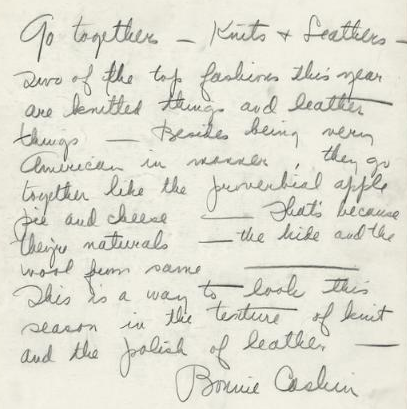 Go together — Knits + Leathers —
Two of the top fashions this year
are knitted things and leather
things — Besides being very
American in manner, they go
together like the proverbial apple
pie and cheese — That's because
they're naturals — the hide and the
wool from same ———
This is a way to look this
season in the texture of knit
and the polish of leather —
Bonnie Cashin